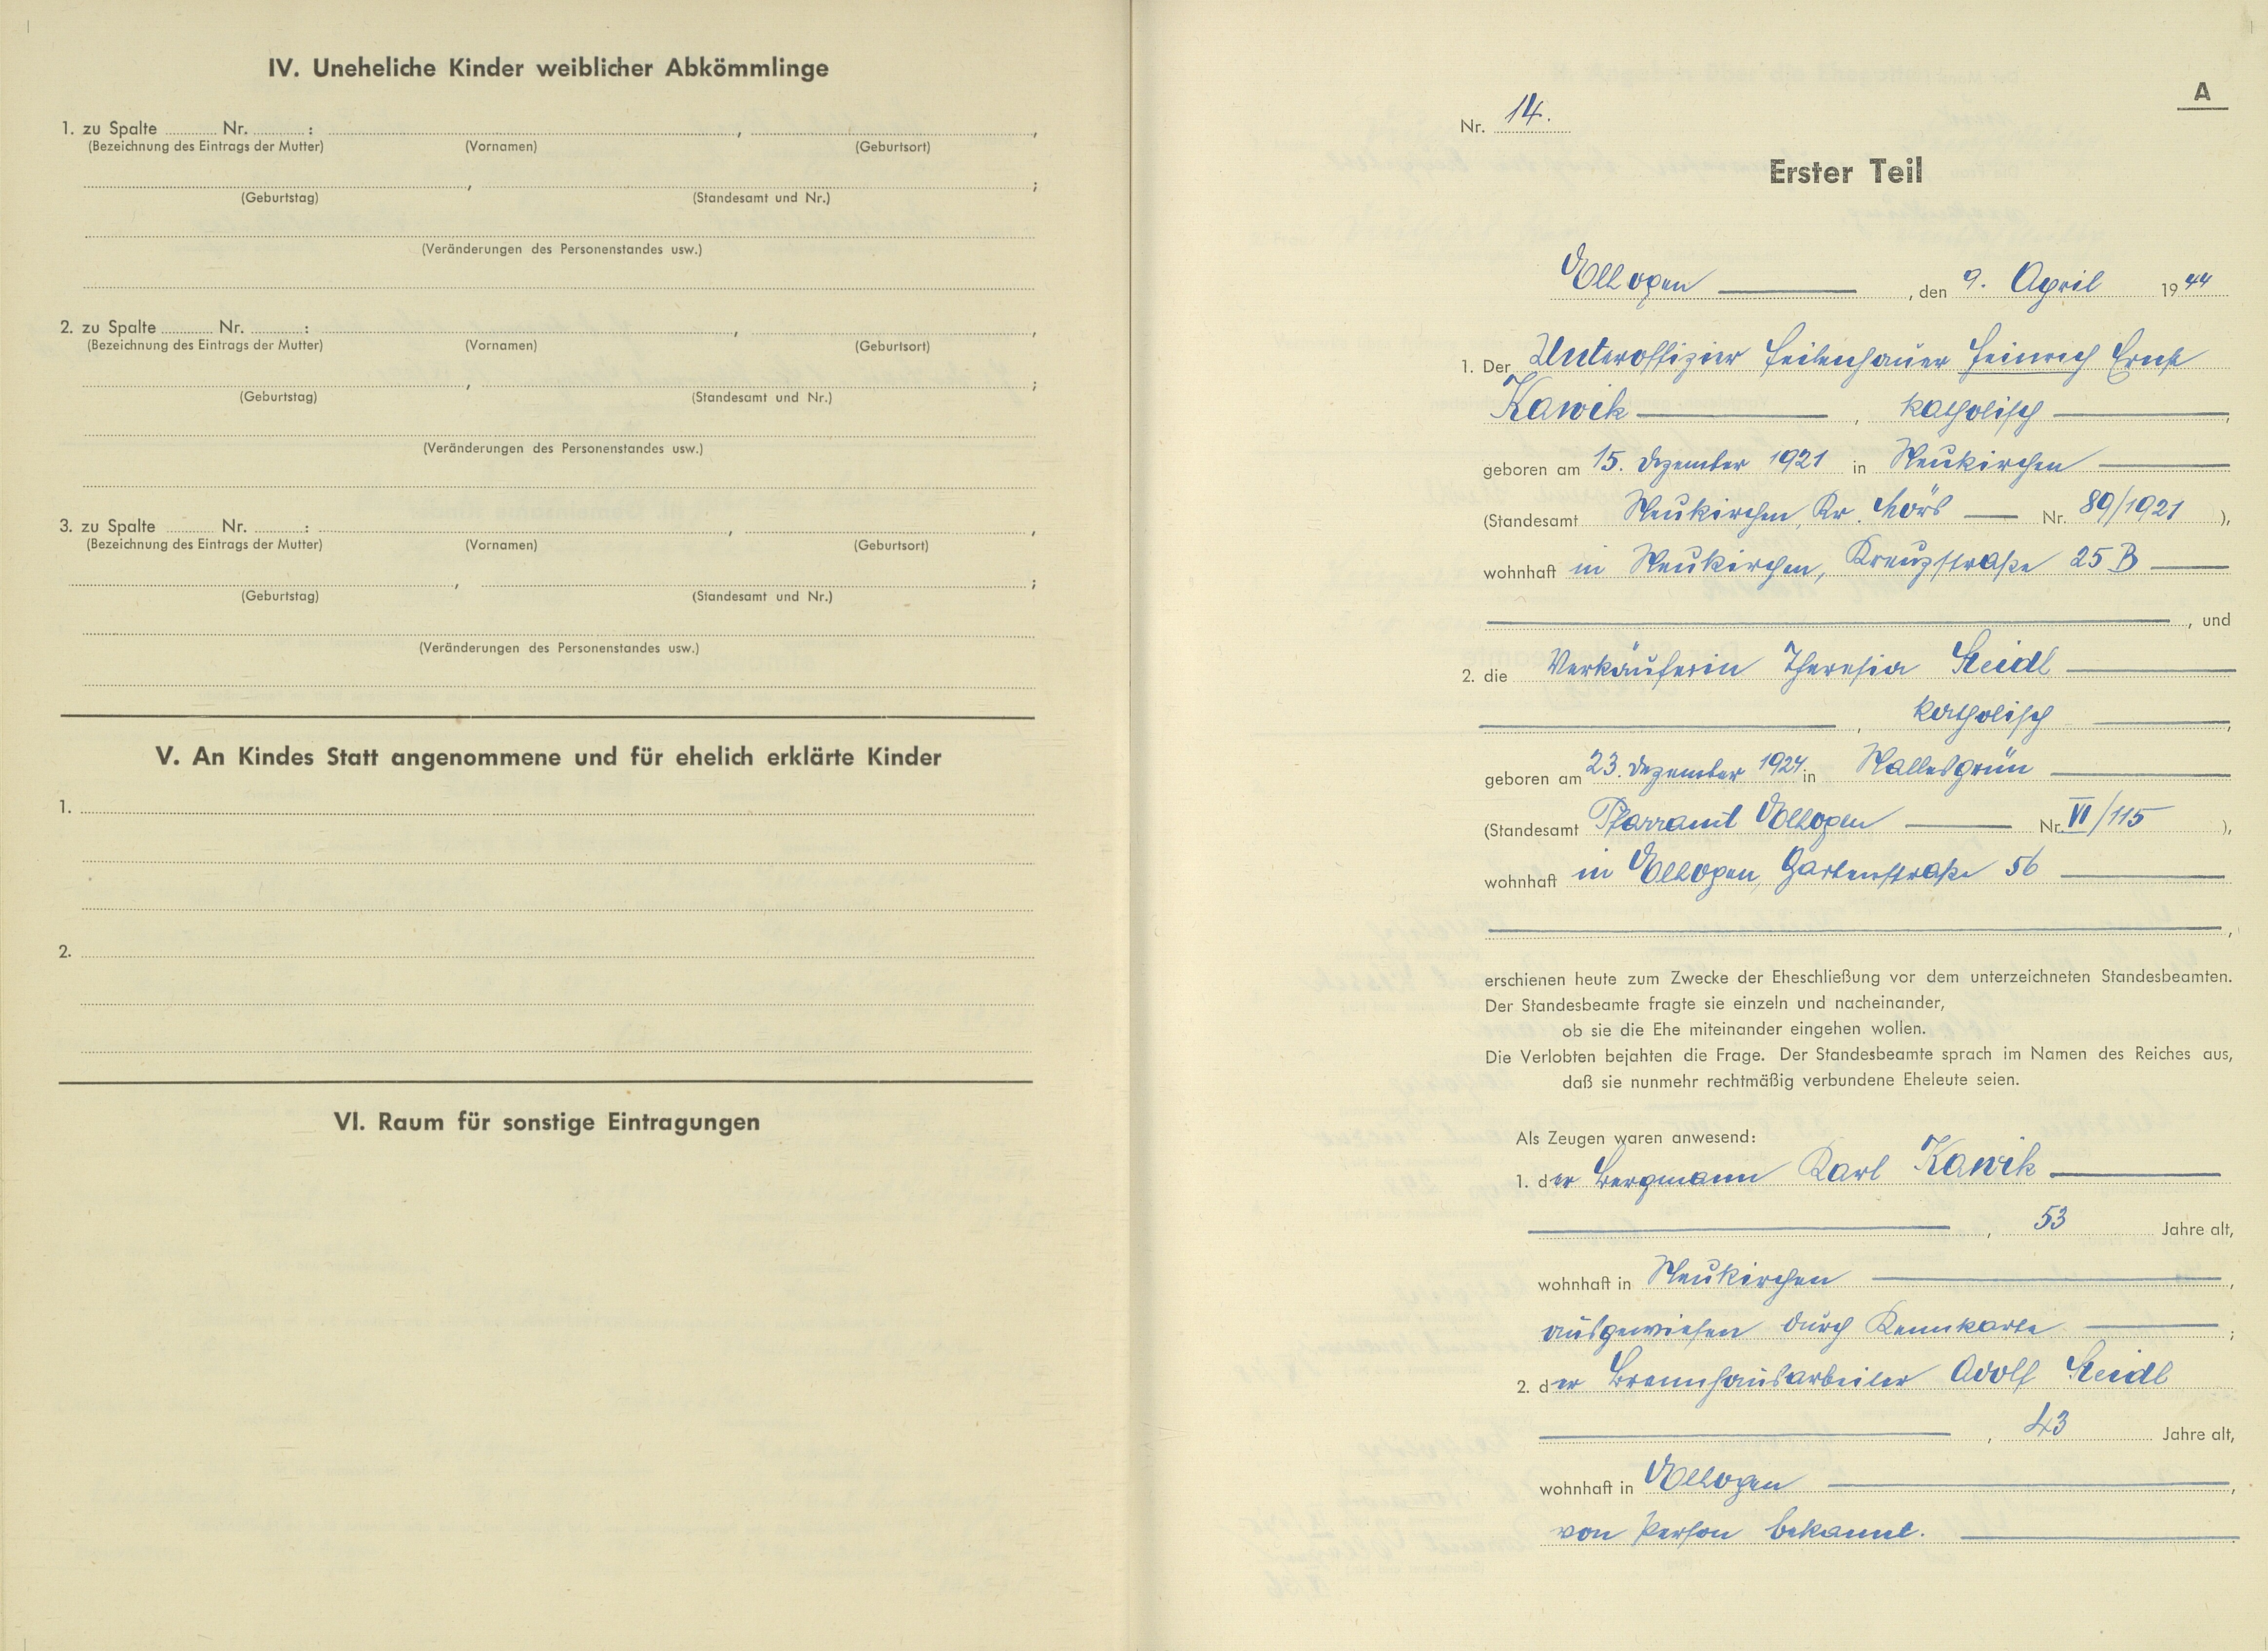 IV. Uneheliche Kinder weiblicher Abkömmlinge
1. zu Spalte ........ Nr. ........ : ........ , ........ ,
(Bezeichnung des Eintrags der Mutter) (Vornamen) (Geburtsort)
........ , ........ ;
(Geburtstag) (Standesamt und Nr.)
(Veränderungen des Personenstandes usw.)
2. zu Spalte ........ Nr. ........ : ........ , ........ ,
(Bezeichnung des Eintrags der Mutter) (Vornamen) (Geburtsort)
........ , ........ ;
(Geburtstag) (Standesamt und Nr.)
(Veränderungen des Personenstandes usw.)
3. zu Spalte ........ Nr. ........ : ........ , ........ ,
(Bezeichnung des Eintrags der Mutter) (Vornamen) (Geburtsort)
........ , ........ ;
(Geburtstag) (Standesamt und Nr.)
(Veränderungen des Personenstandes usw.)
V. An Kindes Statt angenommene und für ehelich erklärte Kinder
1.
2.
VI. Raum für sonstige Eintragungen
A
Nr. 14.
Erster Teil
Ellbogen , den 9. April 1944
1. Der Unteroffizier Feilenhauer Heinrich Ernst
Kawik , katholisch ,
geboren am 15. Dezember 1921 in Neukirchen
(Standesamt Neukirchen, Kr. Mörs Nr. 89/1921 ),
wohnhaft in Neukirchen, Kreuzstraße 25 B
, und
2. die Verkäuferin Theresia Steidl
, katholisch ,
geboren am 23. Dezember 1924 in Nallesgrün
(Standesamt Pfarramt Ellbogen Nr. VI/115 ),
wohnhaft in Ellbogen, Gartenstraße 56
,
erschienen heute zum Zwecke der Eheschließung vor dem unterzeichneten Standesbeamten.
Der Standesbeamte fragte sie einzeln und nacheinander,
ob sie die Ehe miteinander eingehen wollen.
Die Verlobten bejahten die Frage. Der Standesbeamte sprach im Namen des Reiches aus,
daß sie nunmehr rechtmäßig verbundene Eheleute seien.
Als Zeugen waren anwesend:
1. der Bergmann Karl Kawik
, 53 Jahre alt,
wohnhaft in Neukirchen ,
ausgewiesen durch Kennkarte ;
2. der Brennhausarbeiter Adolf Steidl
, 43 Jahre alt,
wohnhaft in Ellbogen ,
von Person bekannt.